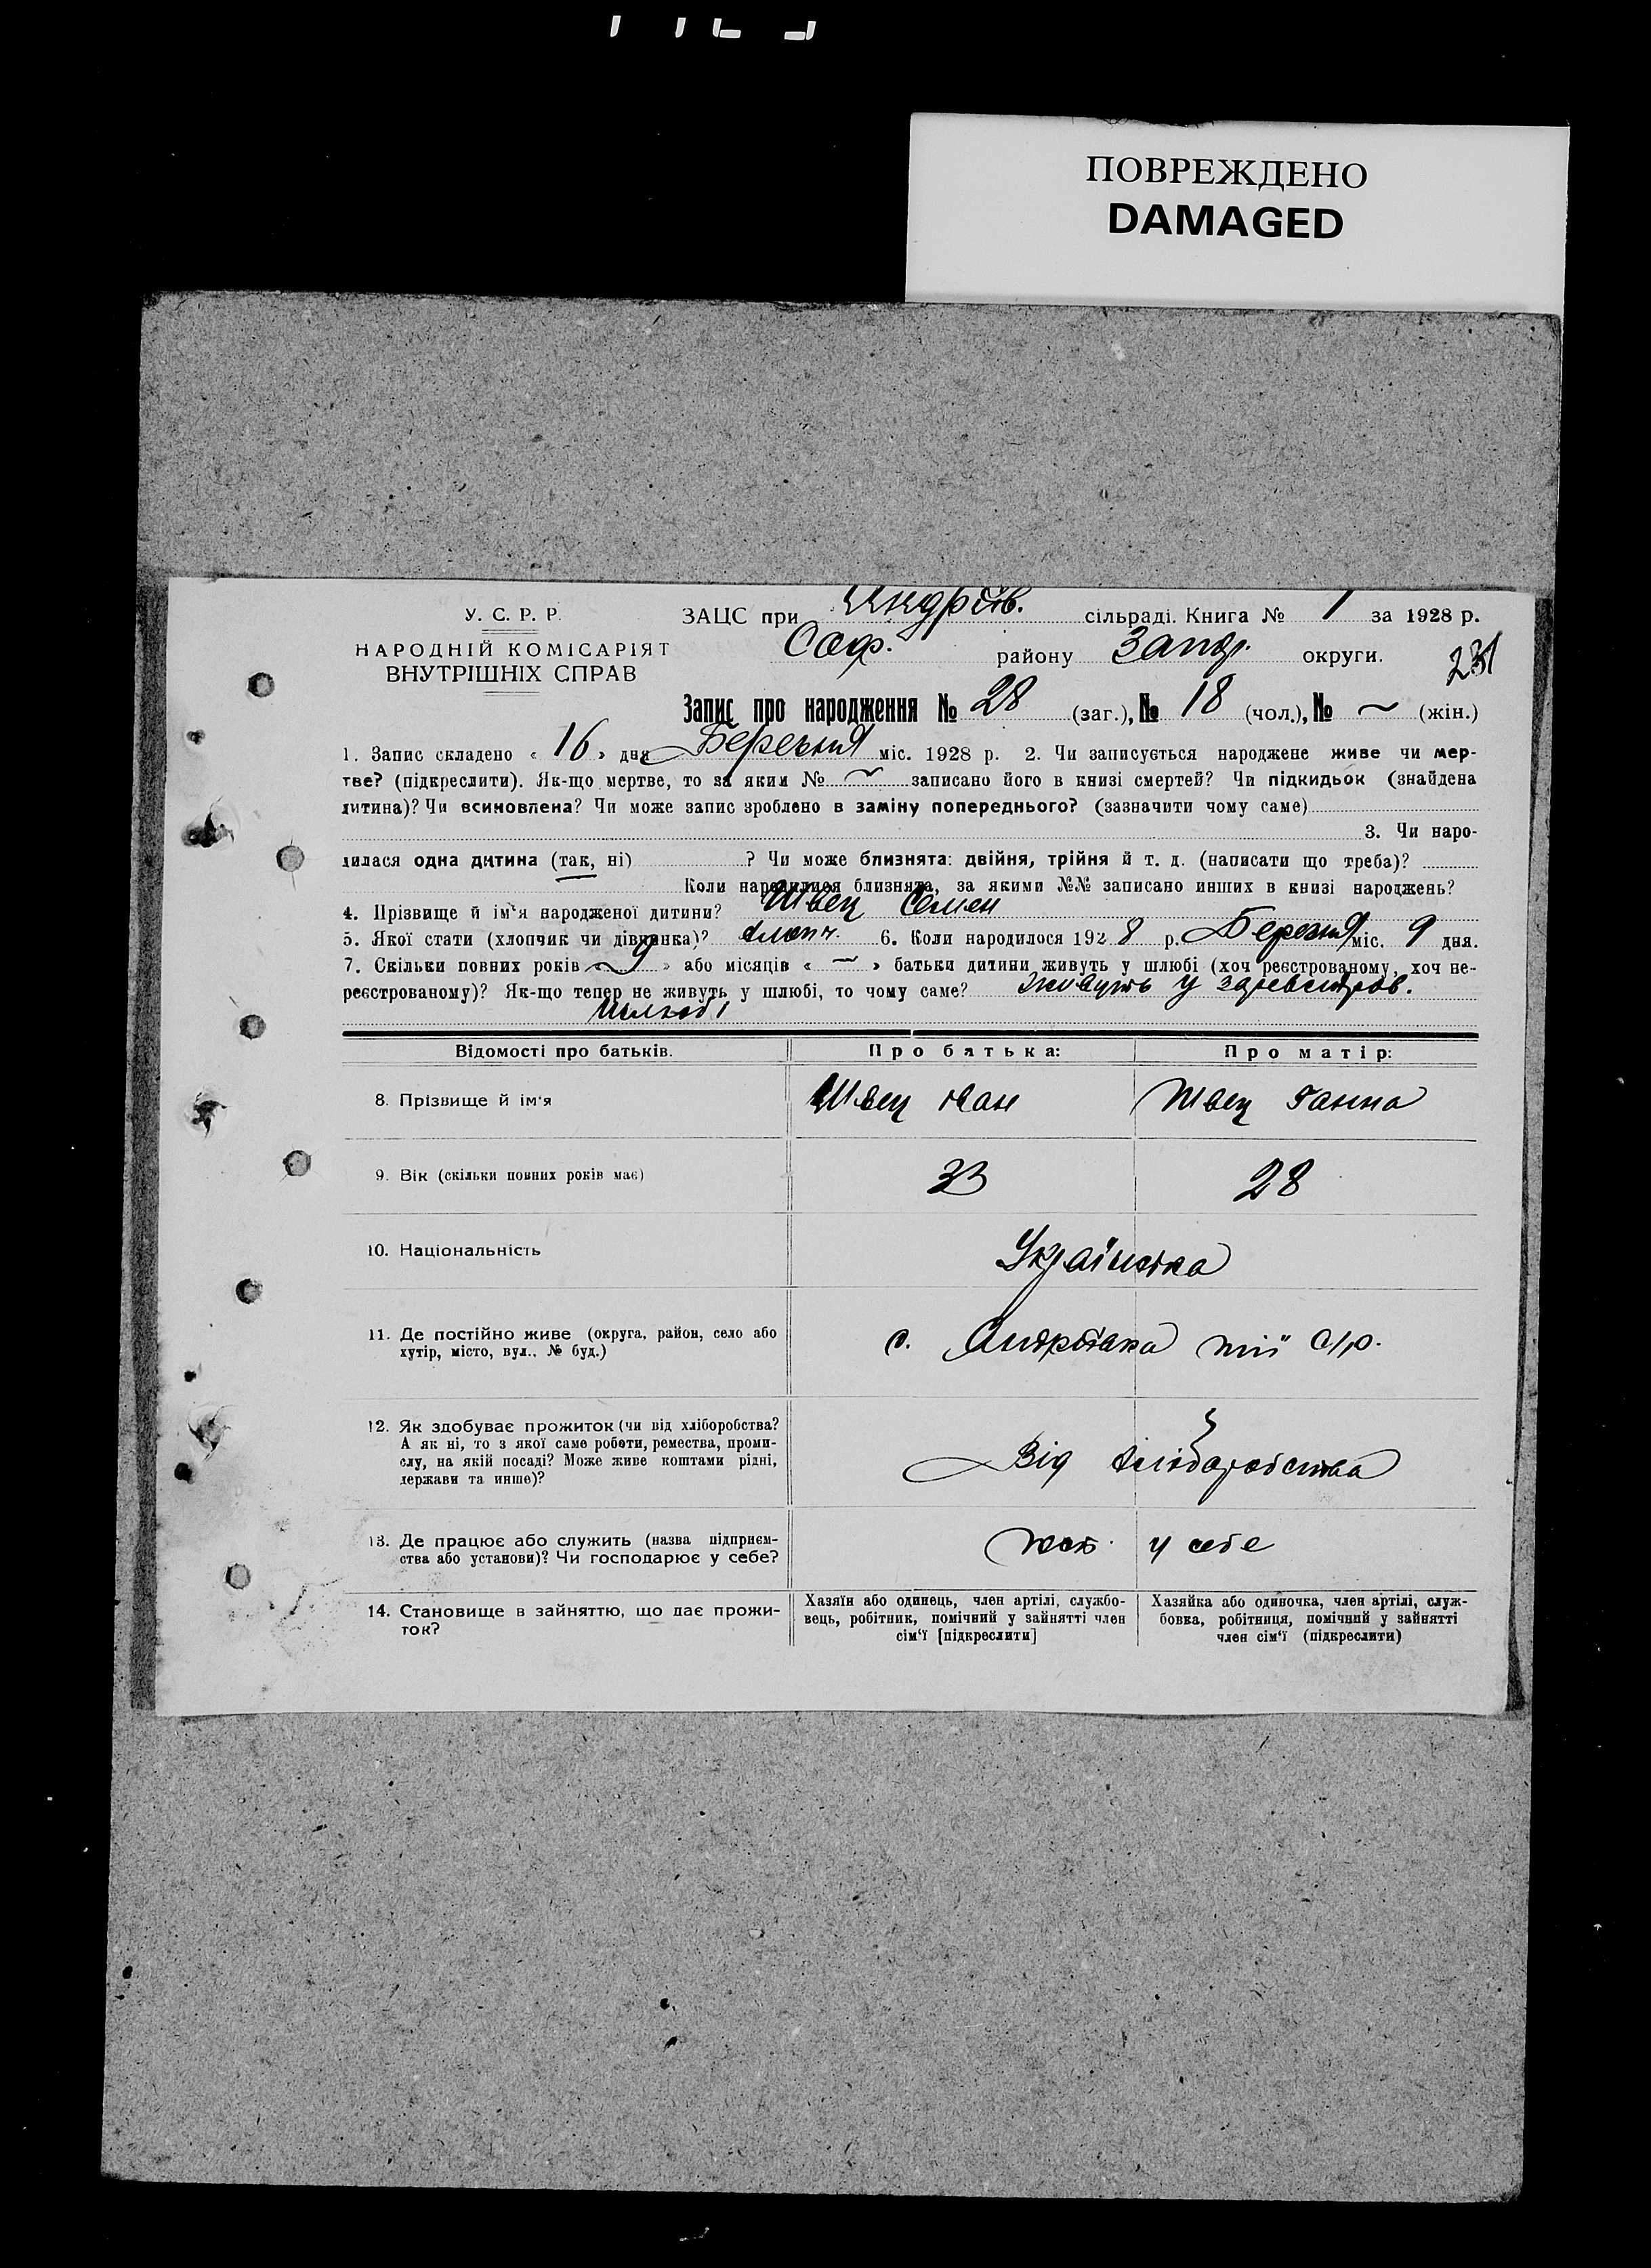 ПОВРЕЖДЕНО
DAMAGED
У. С. Р. Р.
НАРОДНІЙ КОМІСАРІЯТ
ВНУТРІШНІХ СПРАВ
ЗАЦС при Андріїв. сільраді. Книга № 1 за 1928 р.
Соф. району Запор. округи.
231
Запис про народження № 28 (заг.), № 18 (чол.), № ~ (жін.)
1. Запис складено « 16 » дня Березня міс. 1928 р. 2. Чи записується народжене живе чи мер-
тве? (підкреслити). Як-що мертве, то за яким № ~ записано його в книзі смертей? Чи підкидьок (знайдена
дитина)? Чи всиновлена? Чи може запис зроблено в заміну попереднього? (зазначити чому саме)
3. Чи наро-
дилася одна дитина (так, ні) ? Чи може близнята: двійня, трійня й т. д. (написати що треба)?
Коли народилися близнята, за якими №№ записано инших в книзі народжень?
4. Прізвище й ім'я народженої дитини? Швец Семен
5. Якої стати (хлопчик чи дівчинка)? хлопч. 6. Коли народилося 1928 р. Березня міс. 9 дня.
7. Скільки повних років « 9 » або місяців « — » батьки дитини живуть у шлюбі (хоч реєстрованому, хоч не-
реєстрованому)? Як-що тепер не живуть у шлюбі, то чому саме? живуть у зареєстров.
шлюбі
Відомості про батьків. Про батька: Про матір:
8. Прізвище й ім'я Швец Іван Швец Ганна
9. Вік (скільки повних років має) 33 28
10. Національність Українська
11. Де постійно живе (округа, район, село або с. Андріївка тії с/р.
хутір, місто, вул., № буд.)
12. Як здобуває прожиток (чи від хліборобства?
А як ні, то з якої саме роботи, ремества, проми-
слу, на якій посаді? Може живе коштами рідні, Від хліборобства
держави та инше)?
13. Де працює або служить (назва підприєм- госп. у себе
ства або установи)? Чи господарює у себе?
14. Становище в зайняттю, що дає прожи-
ток?
Хазяїн або одинець, член артілі, службо-
вець, робітник, помічний у зайнятті член
сім'ї [підкреслити]
Хазяйка або одиночка, член артілі, служ-
бовка, робітниця, помічний у зайнятті
член сім'ї (підкреслити)